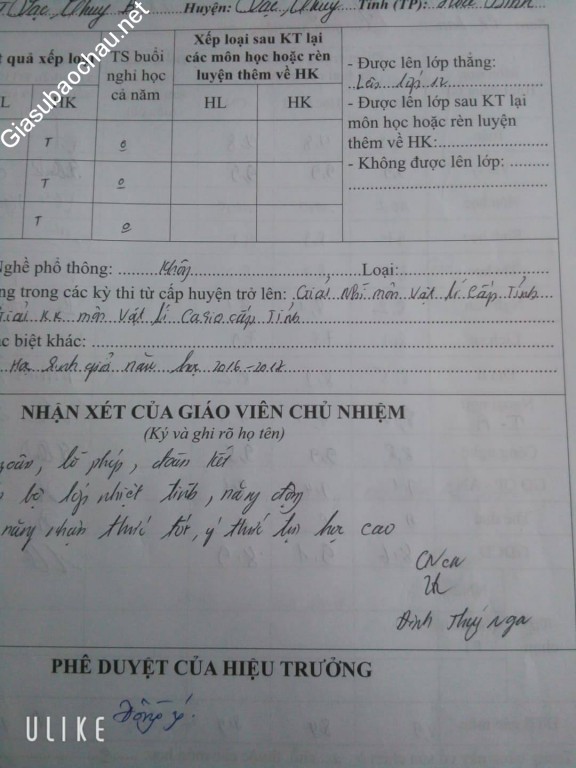 Huyện: Lạc Thuỷ Tỉnh (TP): Hoà Bình
t quả xếp loại
TS buổi nghỉ học cả năm
Xếp loại sau KT lại các môn học hoặc rèn luyện thêm về HK
L HK HL HK
T 0
T 0
T 0
- Được lên lớp thẳng:
Lên lớp 12
- Được lên lớp sau KT lại
môn học hoặc rèn luyện
thêm về HK:
- Không được lên lớp:
Giasubaochau.net
Nghề phổ thông: Không, Loại:
ng trong các kỳ thi từ cấp huyện trở lên: Giải Nhì môn Vật lí Cấp Tỉnh
Giải KK môn Vật Lí Casio cấp Tỉnh
ặc biệt khác:
Học Sinh giỏi năm học 2016-2017
NHẬN XÉT CỦA GIÁO VIÊN CHỦ NHIỆM
(Ký và ghi rõ họ tên)
ngoan, lễ phép, đoàn kết
bộ lớp nhiệt tình, năng động
năng nhận thức tốt, ý thức tự học cao
GVCN
Đinh Thuý Nga
PHÊ DUYỆT CỦA HIỆU TRƯỞNG
Đồng ý.
ULIKE